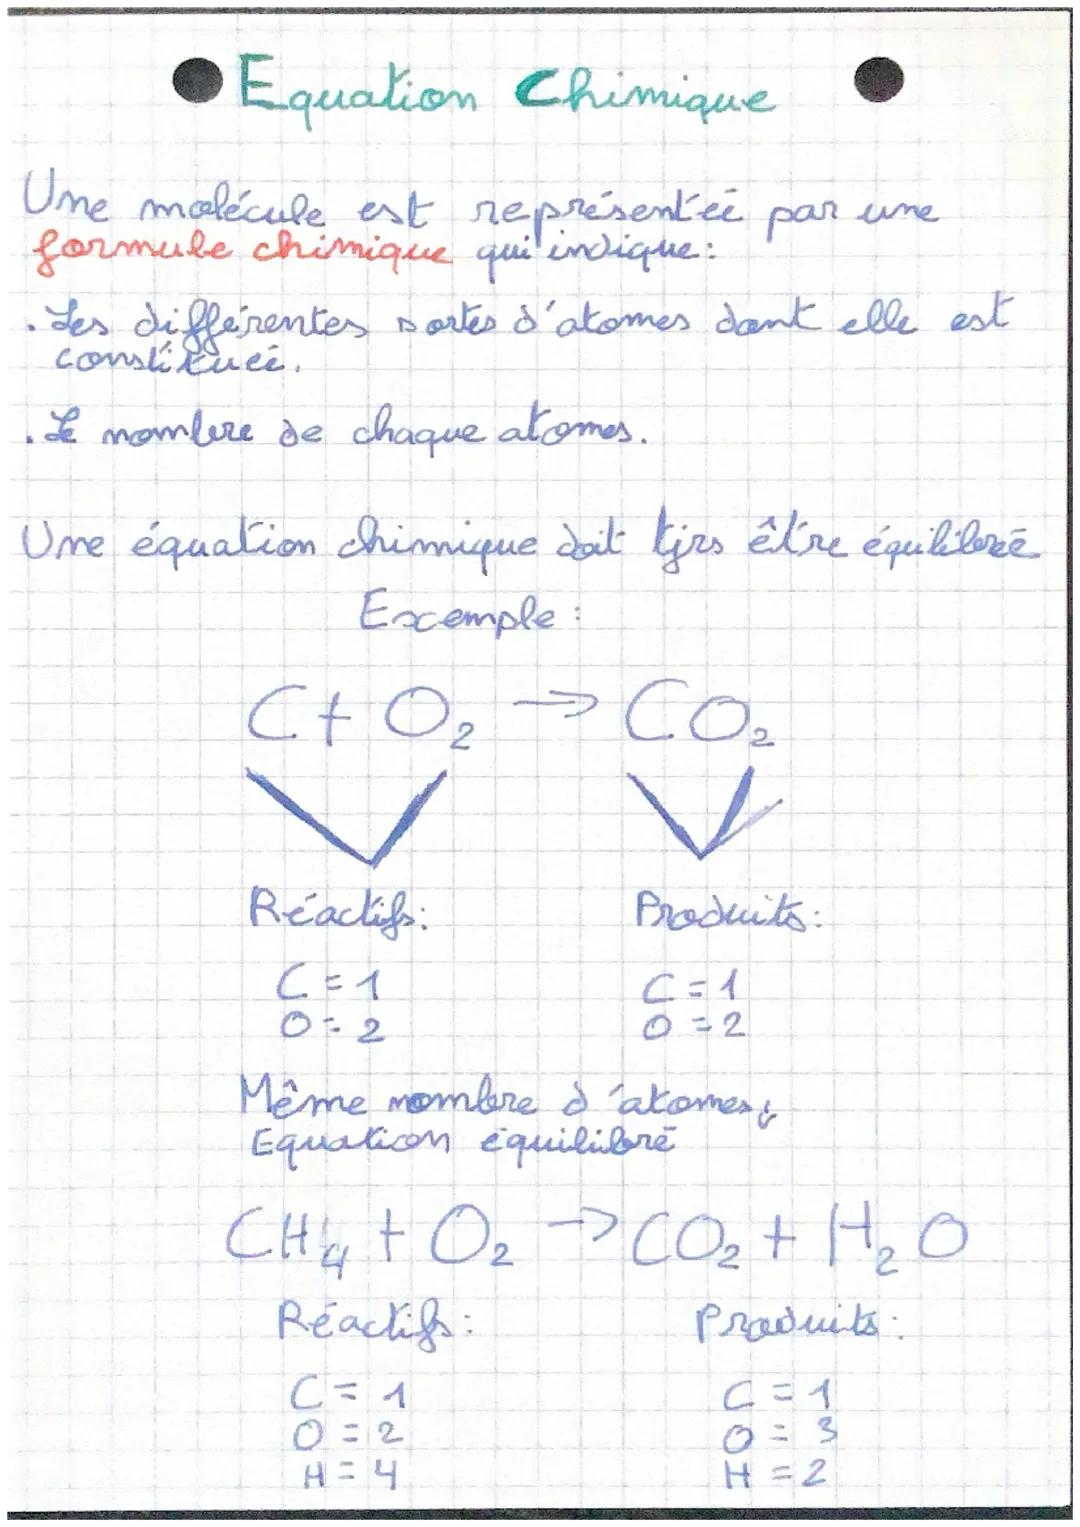 Equation Chimique
Une molécule est représentée par une
formule chimique qui indique:
. Les différentes sortes d'atomes dont elle est
constituée.
. Le nombre de chaque atomes.
Une équation chimique doit tjrs être équilibré
Exemple :
C + O₂ → CO₂
Réactifs: Produits:
C = 1 C = 1
O = 2 O = 2
Même nombre d'atomes;
Equation équilibré
CH₄ + O₂ → CO₂ + H₂O
Réactifs: Produits:
C = 1 C = 1
O = 2 O = 3
H = 4 H = 2